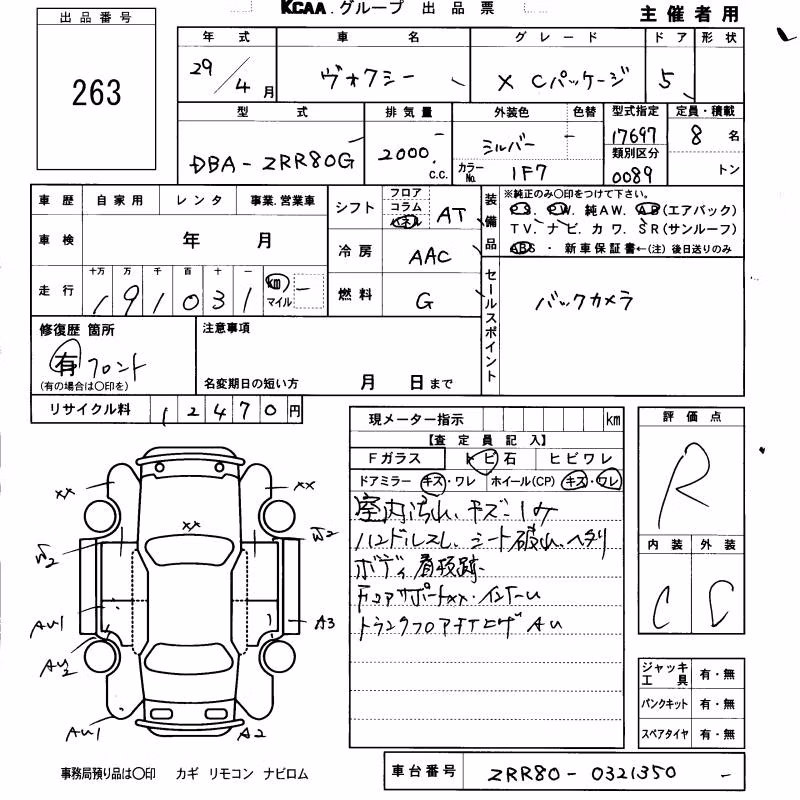 KCAA.グループ 出品票
主催者用
出品番号
263
年式 車名 グレード ドア 形状
29/4月 ヴォクシー X Cパッケージ 5
型式 排気量 外装色 色替 型式指定 定員・積載
DBA-ZRR80G 2000. c.c. シルバー - 17697 8名
カラーNo. 1F7 類別区分 0089 トン
車歴 自家用 レンタ 事業.営業車
車検 年 月
走行 十万 万 千 百 十 一
191031 km マイル
シフト フロア コラム パネル AT
冷房 AAC
燃料 G
装備品
※純正のみ〇印をつけて下さい。
PS. PW. 純AW. AB(エアバック)
TV. ナビ. カワ. SR(サンルーフ)
ABS・新車保証書←(注)後日送りのみ
セールスポイント
バックカメラ
修復歴 箇所
有 フロント
(有の場合は〇印を)
注意事項
名変期日の短い方 月 日まで
リサイクル料 12470円
現メーター指示 km
【査定員記入】
Fガラス トビ石 ヒビワレ
ドアミラー キズ・ワレ ホイール(CP) キズ・ワレ
室内汚れ、キズ
ハンドルスレ、シート破れ、ヘタリ
ボディ看板跡
トランクフロア AU
評価点
R
内装 外装
C C
ジャッキ工具 有・無
パンクキット 有・無
スペアタイヤ 有・無
XX XX
XX
W2 W2
AU1 A3
AU2
AU1 A2
事務局預り品は〇印 カギ リモコン ナビロム
車台番号 ZRR80-0321350 -